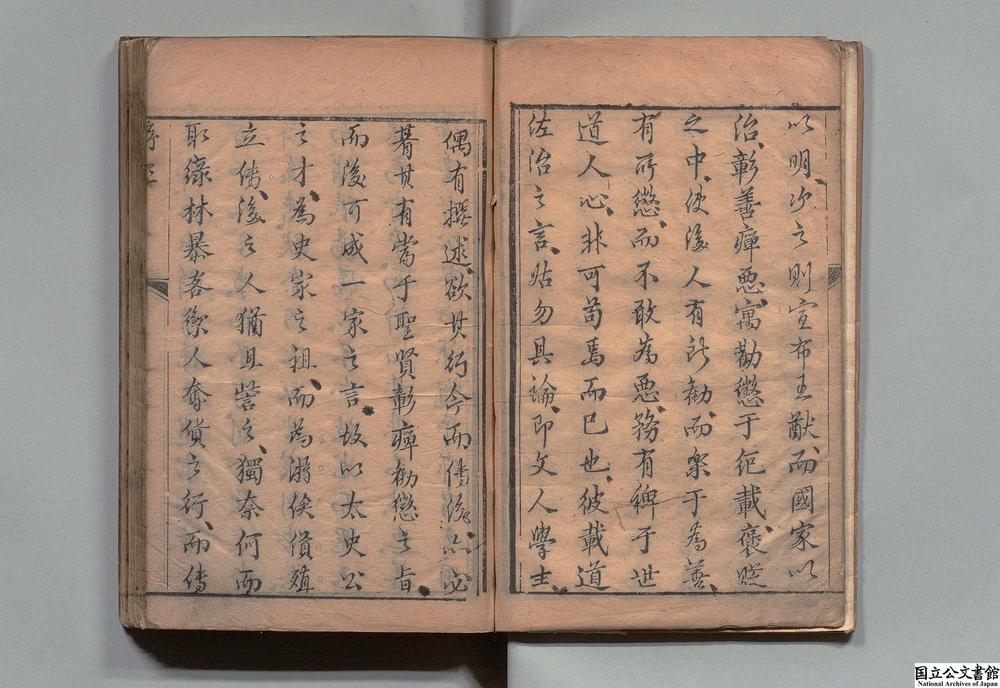 以明、次之則宣布王猷、而國家以
治、彰善癉惡、寓勸懲于紀載、褒貶
之中、使後人有所勸、而樂于為善、
有所懲、而不敢為惡、務有裨于世
道人心、非可苟焉而已也、彼載道
佐治之言、姑勿具論、即文人學士、
偶有撰述、欲其行今而傳後、亦必
著其有當于聖賢彰癉勸懲之旨、
而後可成一家之言、故以太史公
之才、為史家之祖、而為游俠貨殖
立傳、後之人猶且訾之、獨奈何而
取綠林暴客禦人奪貨之行、而傳
国立公文書館
National Archives of Japan